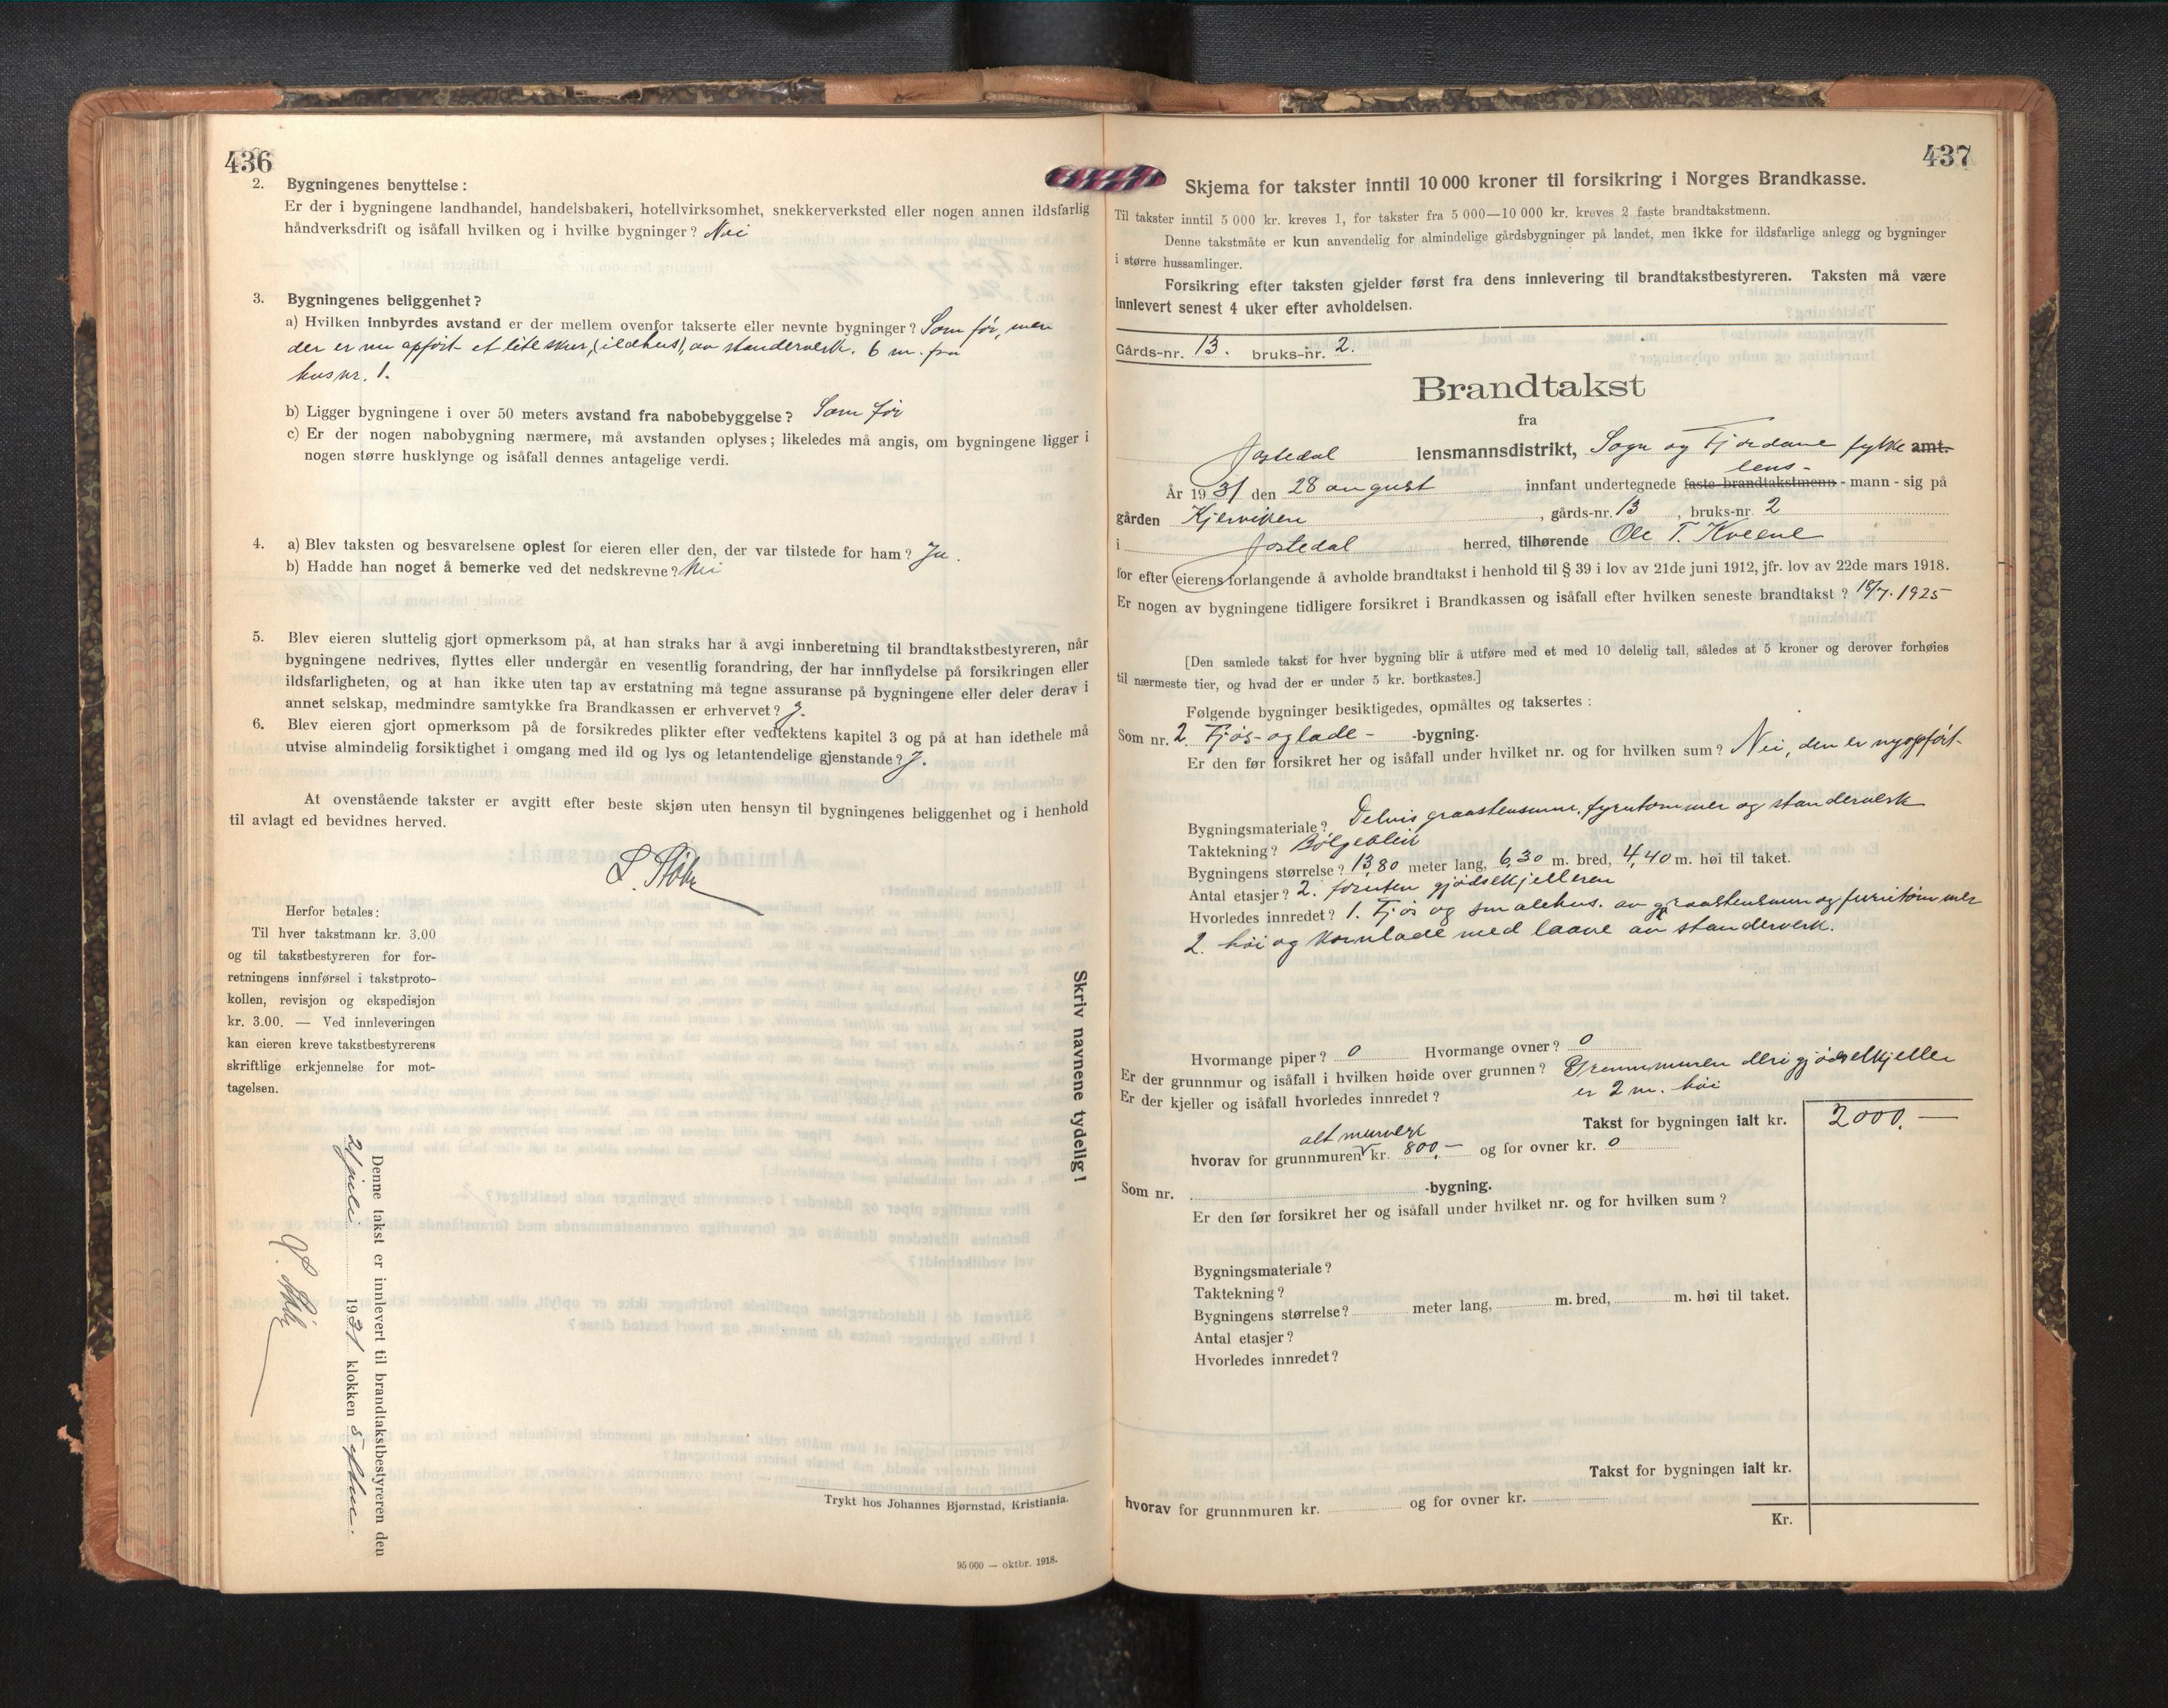 436
2. Bygningenes benyttelse:
Er der i bygningene landhandel, handelsbakeri, hotellvirksomhet, snekkerverksted eller nogen annen ildsfarlig
håndverksdrift og isåfall hvilken og i hvilke bygninger? Nei
3. Bygningenes beliggenhet?
a) Hvilken innbyrdes avstand er der mellem ovenfor takserte eller nevnte bygninger? Som før, men
der er nu opført et lite skur, (ildhus), av standerverk. 6 m. fra
hus nr. 1.
b) Ligger bygningene i over 50 meters avstand fra nabobebyggelse? Som før
c) Er der nogen nabobygning nærmere, må avstanden oplyses; likeledes må angis, om bygningene ligger i
nogen større husklynge og isåfall dennes antagelige verdi.
4. a) Blev taksten og besvarelsene oplest for eieren eller den, der var tilstede for ham? Ja.
b) Hadde han noget å bemerke ved det nedskrevne? Nei
5. Blev eieren sluttelig gjort opmerksom på, at han straks har å avgi innberetning til brandtakstbestyreren, når
bygningene nedrives, flyttes eller undergår en vesentlig forandring, der har innflydelse på forsikringen eller
ildsfarligheten, og at han ikke uten tap av erstatning må tegne assuranse på bygningene eller deler derav i
annet selskap, medmindre samtykke fra Brandkassen er erhvervet? J.
6. Blev eieren gjort opmerksom på de forsikredes plikter efter vedtektens kapitel 3 og på at han idethele må
utvise almindelig forsiktighet i omgang med ild og lys og letantendelige gjenstande? J.
At ovenstående takster er avgitt efter beste skjøn uten hensyn til bygningenes beliggenhet og i henhold
til avlagt ed bevidnes herved.
Herfor betales:
Til hver takstmann kr. 3.00
og til takstbestyreren for for-
retningens innførsel i takstproto-
kollen, revisjon og ekspedisjon
kr. 3.00. — Ved innleveringen
kan eieren kreve takstbestyrerens
skriftlige erkjennelse for mot-
tagelsen.
Skriv navnene tydelig!
Denne takst er innlevert til brandtakstbestyreren den
1931 klokken 5
Trykt hos Johannes Bjørnstad, Kristiania.
95 000 — oktbr. 1918.
437
Skjema for takster inntil 10 000 kroner til forsikring i Norges Brandkasse.
Til takster inntil 5 000 kr. kreves 1, for takster fra 5 000—10 000 kr. kreves 2 faste brandtakstmenn.
Denne takstmåte er kun anvendelig for almindelige gårdsbygninger på landet, men ikke for ildsfarlige anlegg og bygninger
i større hussamlinger.
Forsikring efter taksten gjelder først fra dens innlevering til brandtakstbestyreren. Taksten må være
innlevert senest 4 uker efter avholdelsen.
Gårds-nr. 13. bruks-nr. 2.
Brandtakst
fra
Jostedal lensmannsdistrikt, Sogn og Fjordane fylke amt.
lens-
År 1931 den 28 august innfant undertegnede faste brandtakstmenn - mann - sig på
gården Kjerviken, gårds-nr. 13, bruks-nr. 2
i Jostedal herred, tilhørende Ole T. Kveene
for efter eierens forlangende å avholde brandtakst i henhold til § 39 i lov av 21de juni 1912, jfr. lov av 22de mars 1918.
Er nogen av bygningene tidligere forsikret i Brandkassen og isåfall efter hvilken seneste brandtakst? 18/7. 1925
[Den samlede takst for hver bygning blir å utføre med et med 10 delelig tall, således at 5 kroner og derover forhøies
til nærmeste tier, og hvad der er under 5 kr. bortkastes.]
Følgende bygninger besiktigedes, opmåltes og taksertes:
Som nr. 2. Fjøs- og lade- -bygning.
Er den før forsikret her og isåfall under hvilket nr. og for hvilken sum? Nei, den er nyopført
Bygningsmateriale? Delvis graastensmur, fyrutømmer og standerverk
Taktekning? Bølgeblikk
Bygningens størrelse? 13,80 meter lang, 6,30 m. bred, 4,40 m. høi til taket.
Antal etasjer? 2. foruten gjødselkjelleren
Hvorledes innredet? 1. Fjøs og smalehus. av graastensmur og furutømmer
2. høi og kornlade med laave av standerverk.
Hvormange piper? 0 Hvormange ovner? 0
Er der grunnmur og isåfall i hvilken høide over grunnen? Grunnmuren deri gjødselkjeller
Er der kjeller og isåfall hvorledes innredet? er 2 m. høi
Takst for bygningen ialt kr. 2000,—
alt murverk
hvorav for grunnmuren kr. 800,— og for ovner kr. 0
Som nr. -bygning.
Er den før forsikret her og isåfall under hvilket nr. og for hvilken sum?
Bygningsmateriale?
Taktekning?
Bygningens størrelse? meter lang, m. bred, m. høi til taket.
Antal etasjer?
Hvorledes innredet?
Takst for bygningen ialt kr.
hvorav for grunnmuren kr. og for ovner kr.
Kr.